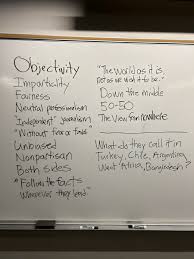 Objectivity
Impartiality
Fairness
Neutral professionalism
"Independent" journalism
"Without fear or favor"
Unbiased
Nonpartisan
Both sides
"Follow the facts
wherever they lead"
"The world as it is,
not as we wish it to be."
Down the middle
50-50
The View from nowhere
What do they call it in
Turkey, Chile, Argentina,
West Africa, Bangladesh?